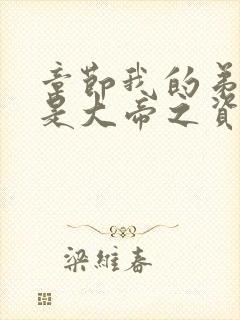 章節我的弟
是大帝之資
梁維春